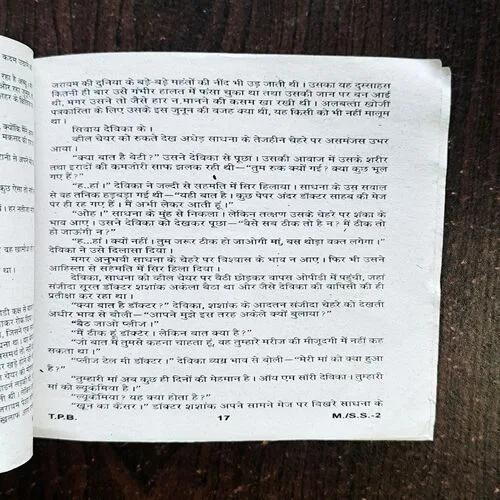 जरायम की दुनिया के बड़े-बड़े महंतों की नींद भी उड़ जाती थी। उसका यह दुस्साहस
कितनी ही बार उसे गंभीर हालत में फंसा चुका था तथा उसकी जान पर बन आई
थी, मगर उसने तो जैसे हार न मानने की कसम खा रखी थी। अलबत्ता खोजी
पत्रकारिता के लिए उसके इस जुनून की वजह क्या थी, यह किसी को भी नहीं मालूम
था।
सिवाय देविका के।
व्हील चेयर को रुकते देख अधेड़ साधना के तेजहीन चेहरे पर असमंजस उभर
आया।
“क्या बात है बेटी?” उसने देविका से पूछा। उसकी आवाज में उसके शरीर
तथा इरादों की कमजोरी साफ झलक रही थी—“तुम रुक क्यों गई? क्या कुछ भूल
गए हैं?”
“ह..हां।” देविका ने जल्दी से सहमति में सिर हिलाया। साधना के उस सवाल
से वह तनिक हड़बड़ा गई थी—“यही बात है। कुछ पेपर अंदर डॉक्टर साहब की मेज
पर ही रह गए हैं। मैं अभी लेकर आती हूं।”
“ओह।” साधना के मुंह से निकला। लेकिन तत्क्षण उसके चेहरे पर शंका के
भाव आए। उसने देविका को देखकर पूछा—“वैसे सब ठीक तो है न? मैं ठीक तो
हो जाऊंगी न?”
“ह...हां। क्यों नहीं। तुम जरूर ठीक हो जाओगी मां, बस थोड़ा वक्त लगेगा।”
देविका ने उसे दिलासा दिया।
मगर अनुभवी साधना के चेहरे पर विश्वास के भाव न आए। फिर भी उसने
आहिस्ता से सहमति में सिर हिला दिया।
देविका, साधना की व्हील चेयर पर बैठी छोड़कर वापस ओपीडी में पहुंची, जहां
संजीदा सूरत डॉक्टर शशांक अकेला बैठा था और जैसे देविका की वापिसी की ही
प्रतीक्षा कर रहा था।
“क्या बात है डॉक्टर?” देविका, शशांक के आदतन संजीदा चेहरे को देखती
अधीर भाव से बोली—“आपने मुझे इस तरह अकेले क्यों बुलाया?”
“बैठ जाओ प्लीज।”
“मैं ठीक हूं डॉक्टर। लेकिन बात क्या है?”
“जो बात मैं तुमसे कहना चाहता हूं, वह तुम्हारे मरीज की मौजूदगी में नहीं कह
सकता था।”
“प्लीज टेल मी डॉक्टर।” देविका व्यग्र भाव से बोली—“मेरी मां को क्या हुआ
है?”
“तुम्हारी मां अब कुछ ही दिनों की मेहमान है। ऑय एम सॉरी देविका। तुम्हारी
मां को ल्यूकेमिया है।”
“ल्यूकेमिया? यह क्या होता है?”
“खून का कैंसर।” डॉक्टर शशांक अपने सामने मेज पर बिखरे साधना के
T.P.B. 17 M./S.S.-2